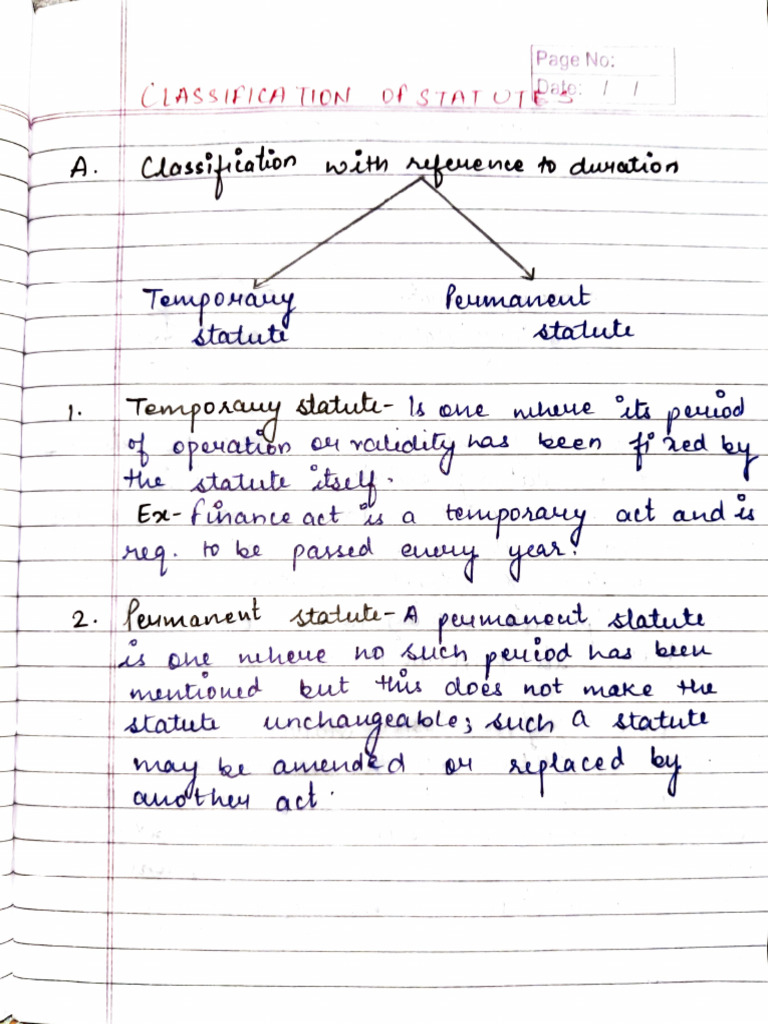 Page No:
Date: / /
CLASSIFICATION OF STATUTES
A. Classification with reference to duration
Temporary Permanent
statute statute
1. Temporary statute- Is one where its period
of operation or validity has been fixed by
the statute itself.
Ex- finance act is a temporary act and is
req. to be passed every year.
2. Permanent statute- A permanent statute
is one where no such period has been
mentioned but this does not make the
statute unchangeable; such a statute
may be amended or replaced by
another act.